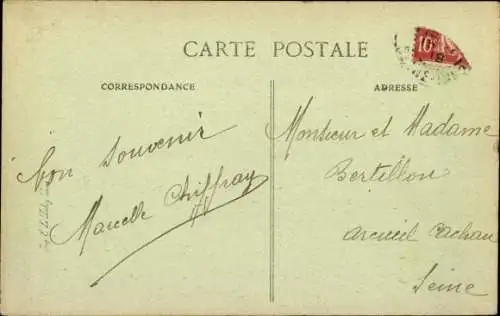 CARTE POSTALE
CORRESPONDANCE
Bon Souvenir
Marcelle
ADRESSE
10
Monsieur et Madame
Bertillon
Arcueil Cachan
Seine